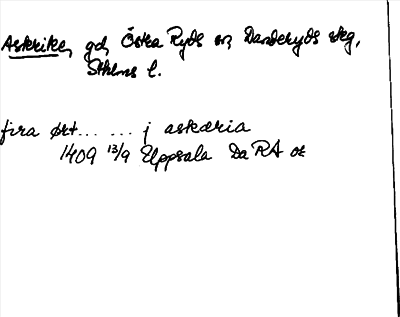 Askrike, gd, Östra Ryds sn, Danderyds skg,
Sthlms l.
fira ört... ... j askæria
1409 13/9 Uppsala Da RA or